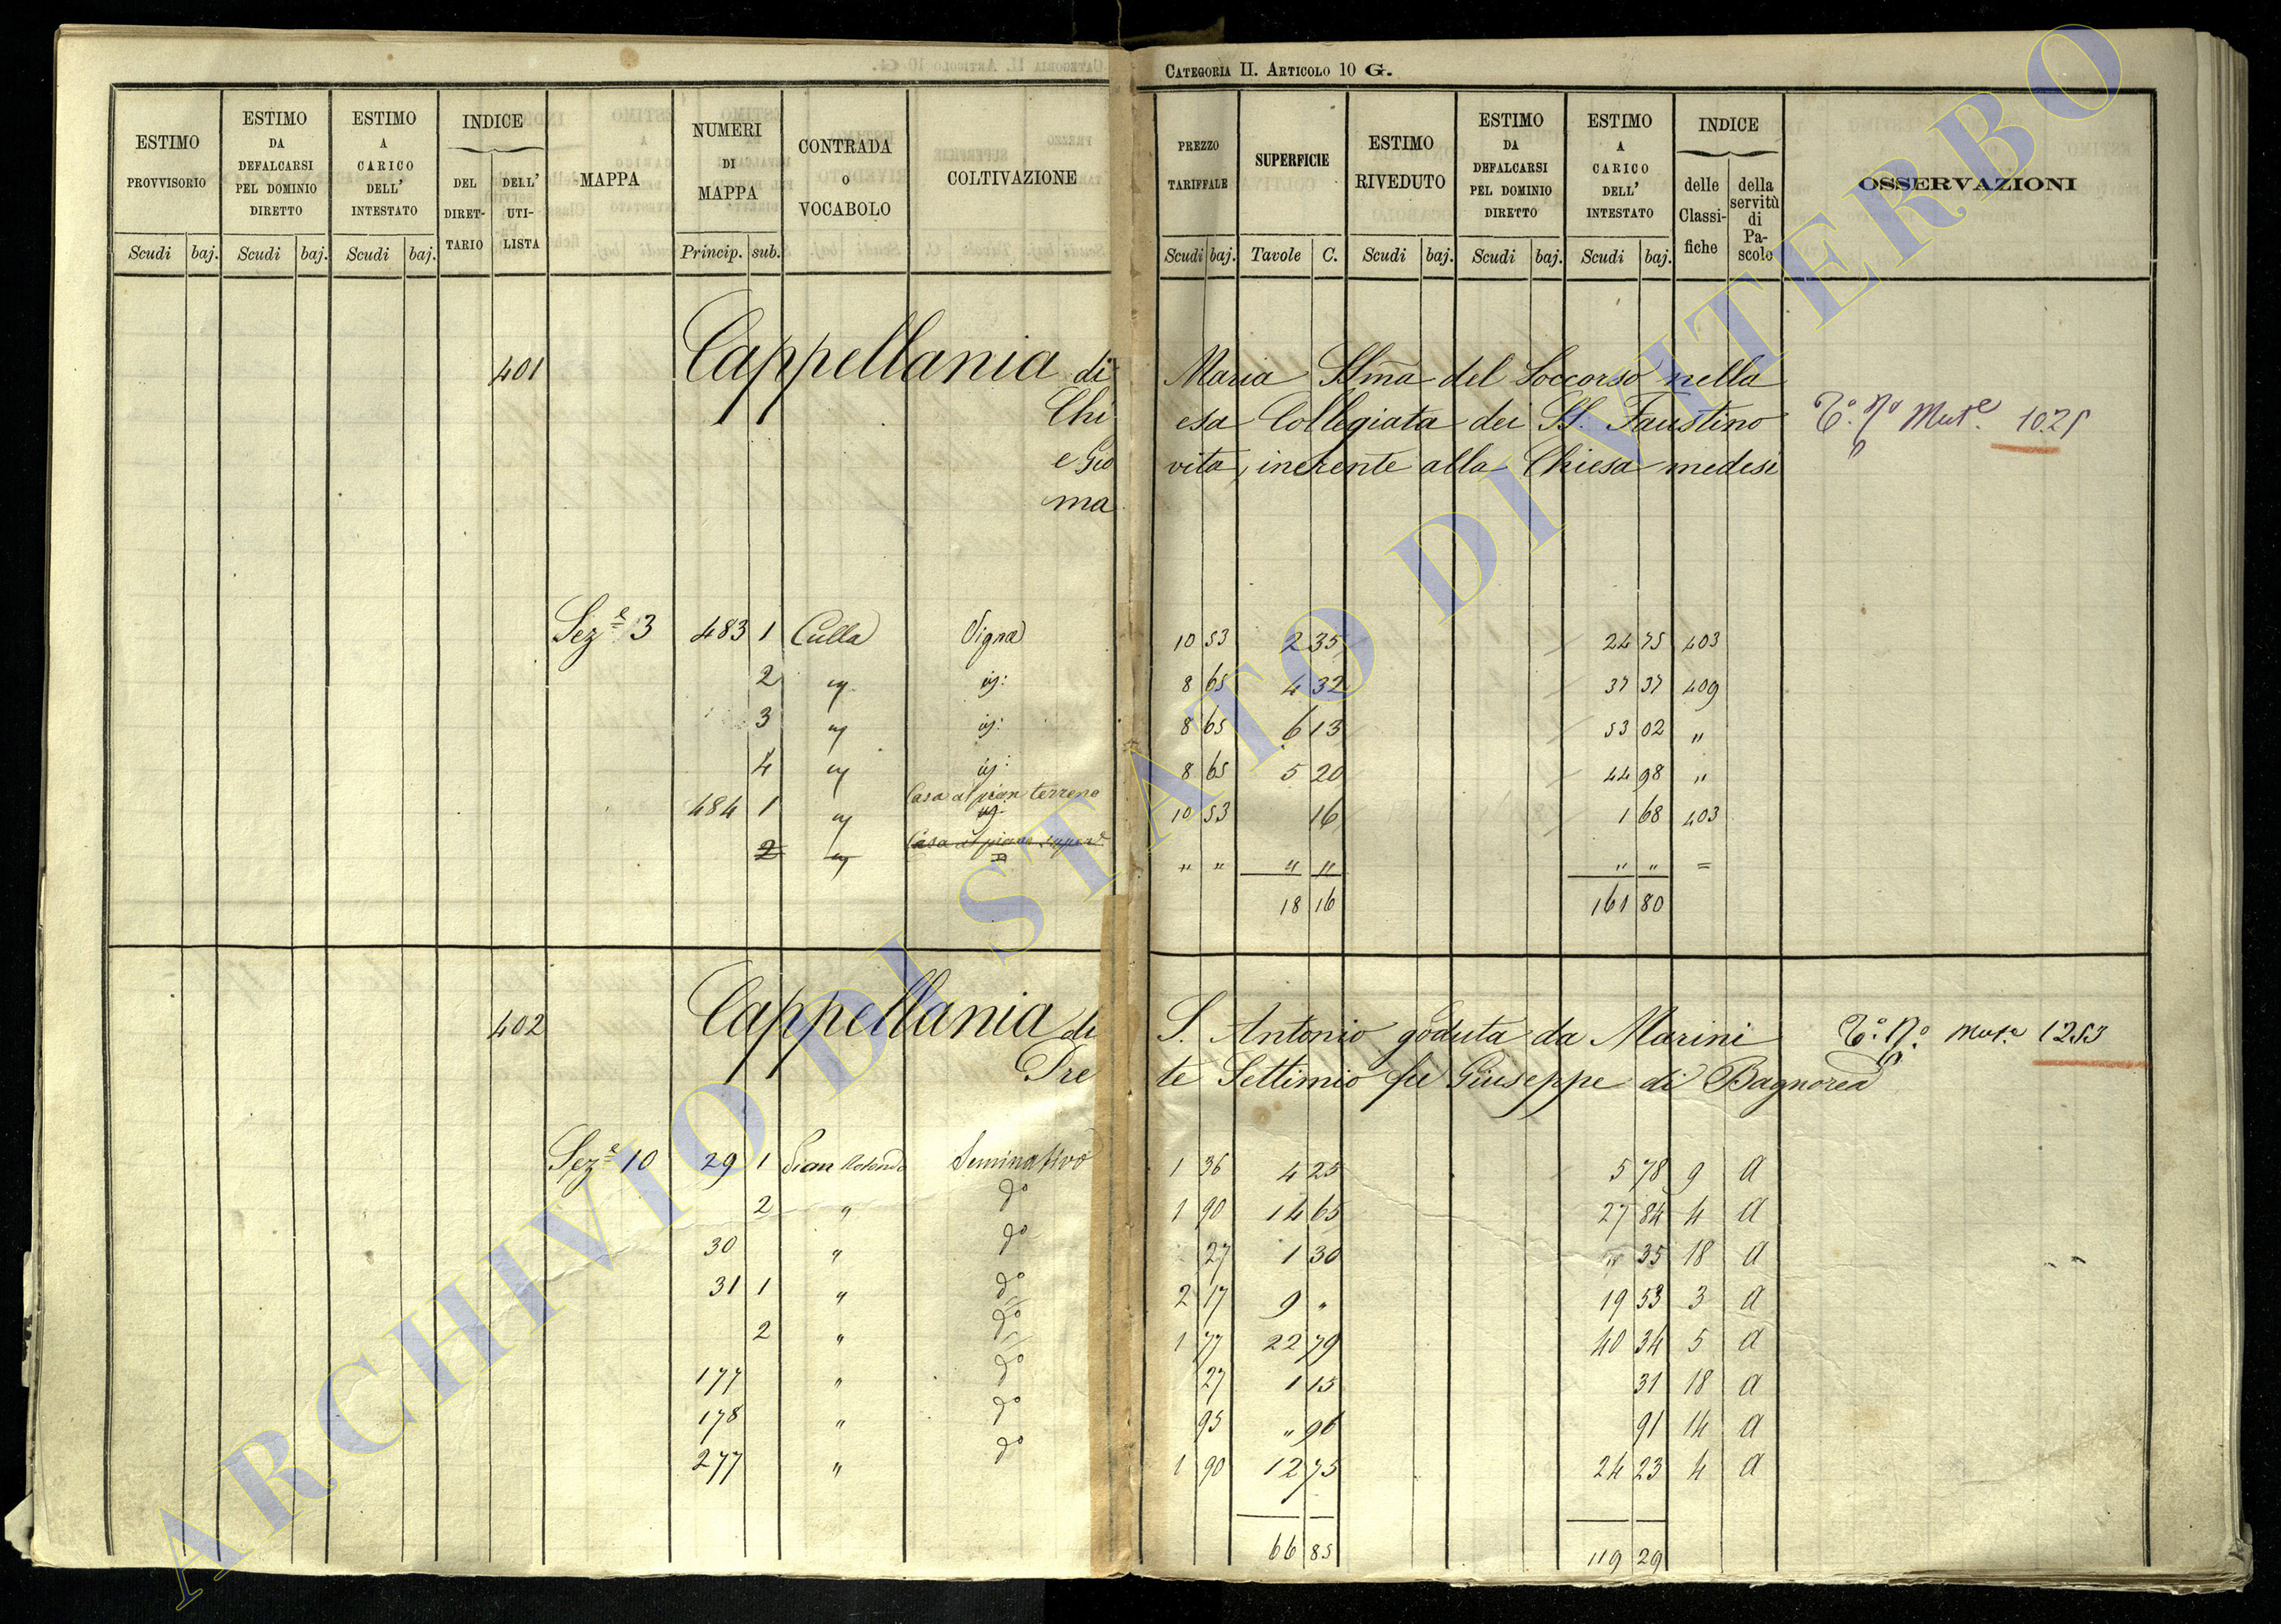 CATEGORIA II. ARTICOLO 10 G.
ESTIMO PROVVISORIO
ESTIMO DA DEFALCARSI PEL DOMINIO DIRETTO
ESTIMO A CARICO DELL' INTESTATO
INDICE
DEL DIRET-TARIO
DELL' UTI-LISTA
MAPPA
NUMERI DI MAPPA
CONTRADA O VOCABOLO
COLTIVAZIONE
PREZZO TARIFFALE
SUPERFICIE
ESTIMO RIVEDUTO
ESTIMO DA DEFALCARSI PEL DOMINIO DIRETTO
ESTIMO A CARICO DELL' INTESTATO
INDICE
delle Classi-fiche
della servitù di Pa-scolo
OSSERVAZIONI
Scudi baj. Scudi baj. Scudi baj. Princip. sub. Scudi baj. Tavole C. Scudi baj. Scudi baj. Scudi baj.
401 Cappellania di Maria SSma del Soccorso nella
Chi esa Collegiata dei SS. Faustino Mut.e 1025
e Gio vita, inerente alla Chiesa medesi
ma
Sez.e 3 483 1 Culla Vigna 10 53 2 35 24 75 403
2 " id: 8 65 4 32 37 37 409
3 " id: 8 65 6 13 53 02 "
4 " id: 8 65 5 20 44 98 "
484 1 " Casa al pian terreno 10 53 16 1 68 403
2 " Casa al piano super.e " " " " " " =
18 16 161 80
402 Cappellania di S. Antonio goduta da Marini Mut.e 1253
Pre te Settimio fu Giuseppe di Bagnorea
Sez.e 10 29 1 Pian Rotondo Seminativo 1 36 4 25 5 78 9 A
2 " do 1 90 14 65 27 84 4 A
30 " do 27 1 30 " 35 18 A
31 1 " do 2 17 9 " 19 53 3 A
2 " do 1 77 22 79 40 34 5 A
177 " do 27 1 15 31 18 A
178 " do 95 " 96 91 14 A
277 " do 1 90 12 75 24 23 4 A
66 85 119 29
ARCHIVIO DI STATO DI VITERBO